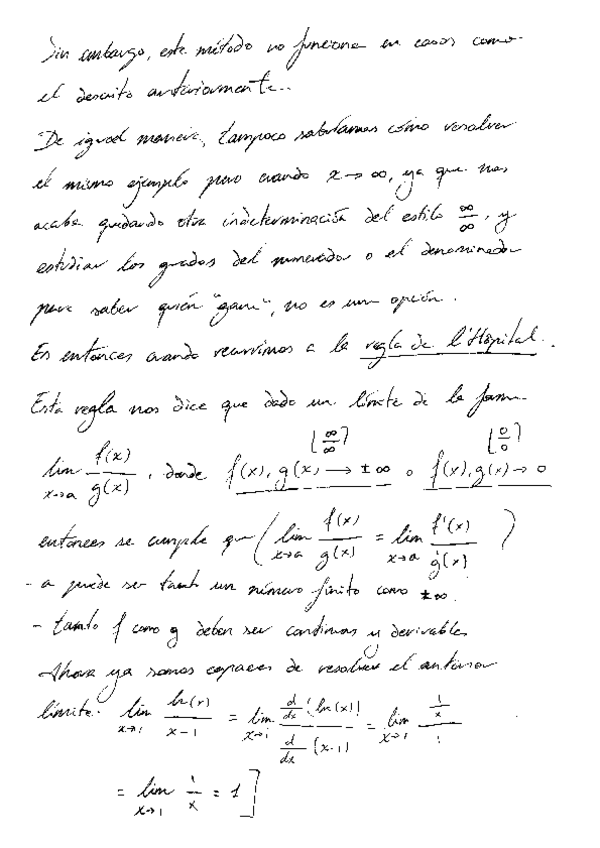 Sin embargo, este método no funciona en casos como
el descrito anteriormente..
De igual manera, tampoco sabríamos cómo resolver
el mismo ejemplo pero cuando x → ∞, ya que nos
acaba quedando otra indeterminación del estilo ∞/∞, y
estudiar los grados del numerador o el denominador
para saber quién "gana", no es una opción.
Es entonces cuando recurrimos a la regla de l'Hôpital.
Esta regla nos dice que dado un límite de la forma
[∞/∞] [0/0]
lim x→a f(x)/g(x), donde f(x), g(x) → ±∞ o f(x), g(x) → 0
entonces se cumple que ( lim x→a f(x)/g(x) = lim x→a f'(x)/g'(x) )
- a puede ser tanto un número finito como ±∞.
- tanto f como g deben ser continuas y derivables
Ahora ya somos capaces de resolver el anterior
límite: lim x→1 ln(x)/x-1 = lim x→1 d/dx (ln(x)) / d/dx (x-1) = lim x→1 1/x / 1
= lim x→1 1/x = 1 ]